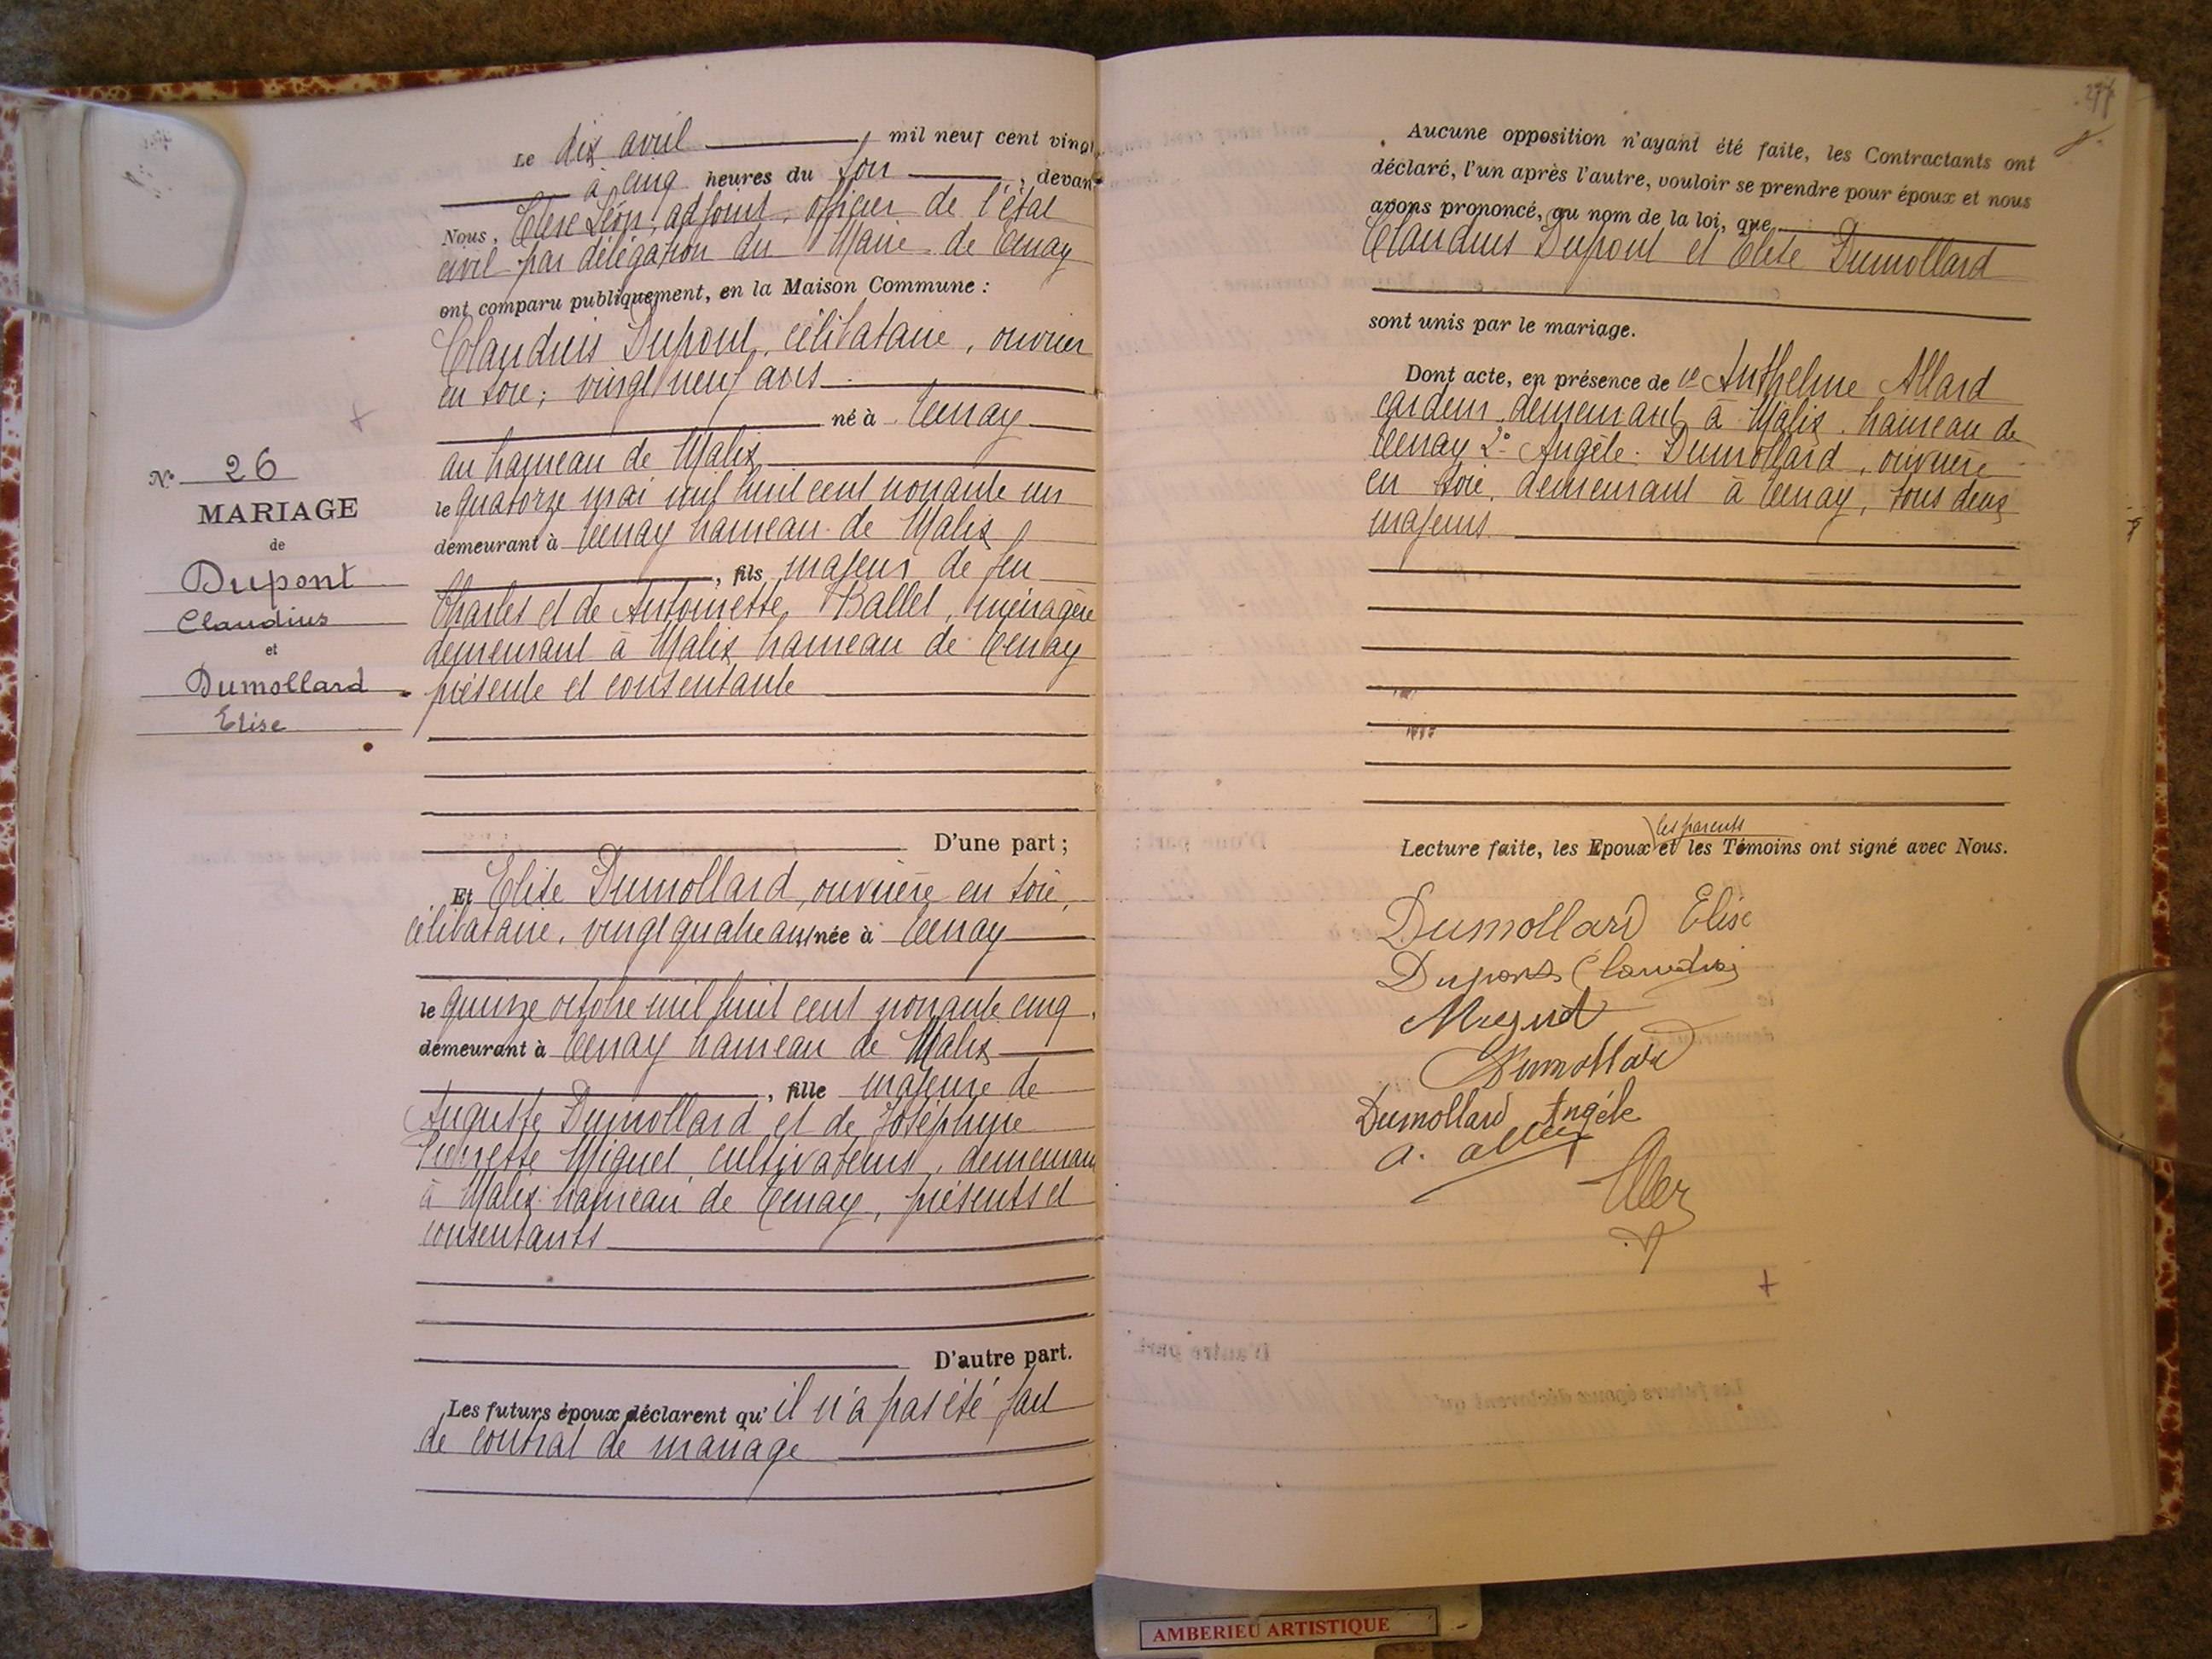 Le dix avril mil neuf cent vingt
à cinq heures du soir , devant
Nous, Léon, adjoint, officier de l'état
civil par délégation du Maire de Tenay
ont comparu publiquement, en la Maison Commune :
Claudius Dupont, célibataire, ouvrier
en soie, vingt neuf ans
né à Tenay
au hameau de Malix
le quatorze mai mil huit cent nonante un
demeurant à Tenay hameau de Malix
, fils majeur de feu
Charles et de Antoinette Ballet, ménagère
demeurant à Malix hameau de Tenay
présente et consentante
N° 26
MARIAGE
de
Dupont
Claudius
et
Dumollard
Elise
D'une part ;
Et Elise Dumollard, ouvrière en soie,
célibataire, vingt quatre ans, née à Tenay
le quinze octobre mil huit cent nonante cinq,
demeurant à Tenay hameau de Malix
, fille majeure de
Auguste Dumollard et de Joséphine
Pierrette Miguet, cultivateurs, demeurant
à Malix hameau de Tenay, présents et
consentants
D'autre part.
Les futurs époux déclarent qu' il n'a pas été fait
de contrat de mariage
Aucune opposition n'ayant été faite, les Contractants ont
déclaré, l'un après l'autre, vouloir se prendre pour époux et nous
avons prononcé, au nom de la loi, que
Claudius Dupont et Elise Dumollard
sont unis par le mariage.
Dont acte, en présence de 1° Anthelme Allard
cardeur demeurant à Malix, hameau de
Tenay 2° Angèle Dumollard, ouvrière
en soie, demeurant à Tenay, tous deux
majeurs
les parents
Lecture faite, les Epoux et les Témoins ont signé avec Nous.
Dumollard Elise
Dupont Claudius
Miguet
Dumollard
Dumollard Angèle
AMBERIEU ARTISTIQUE